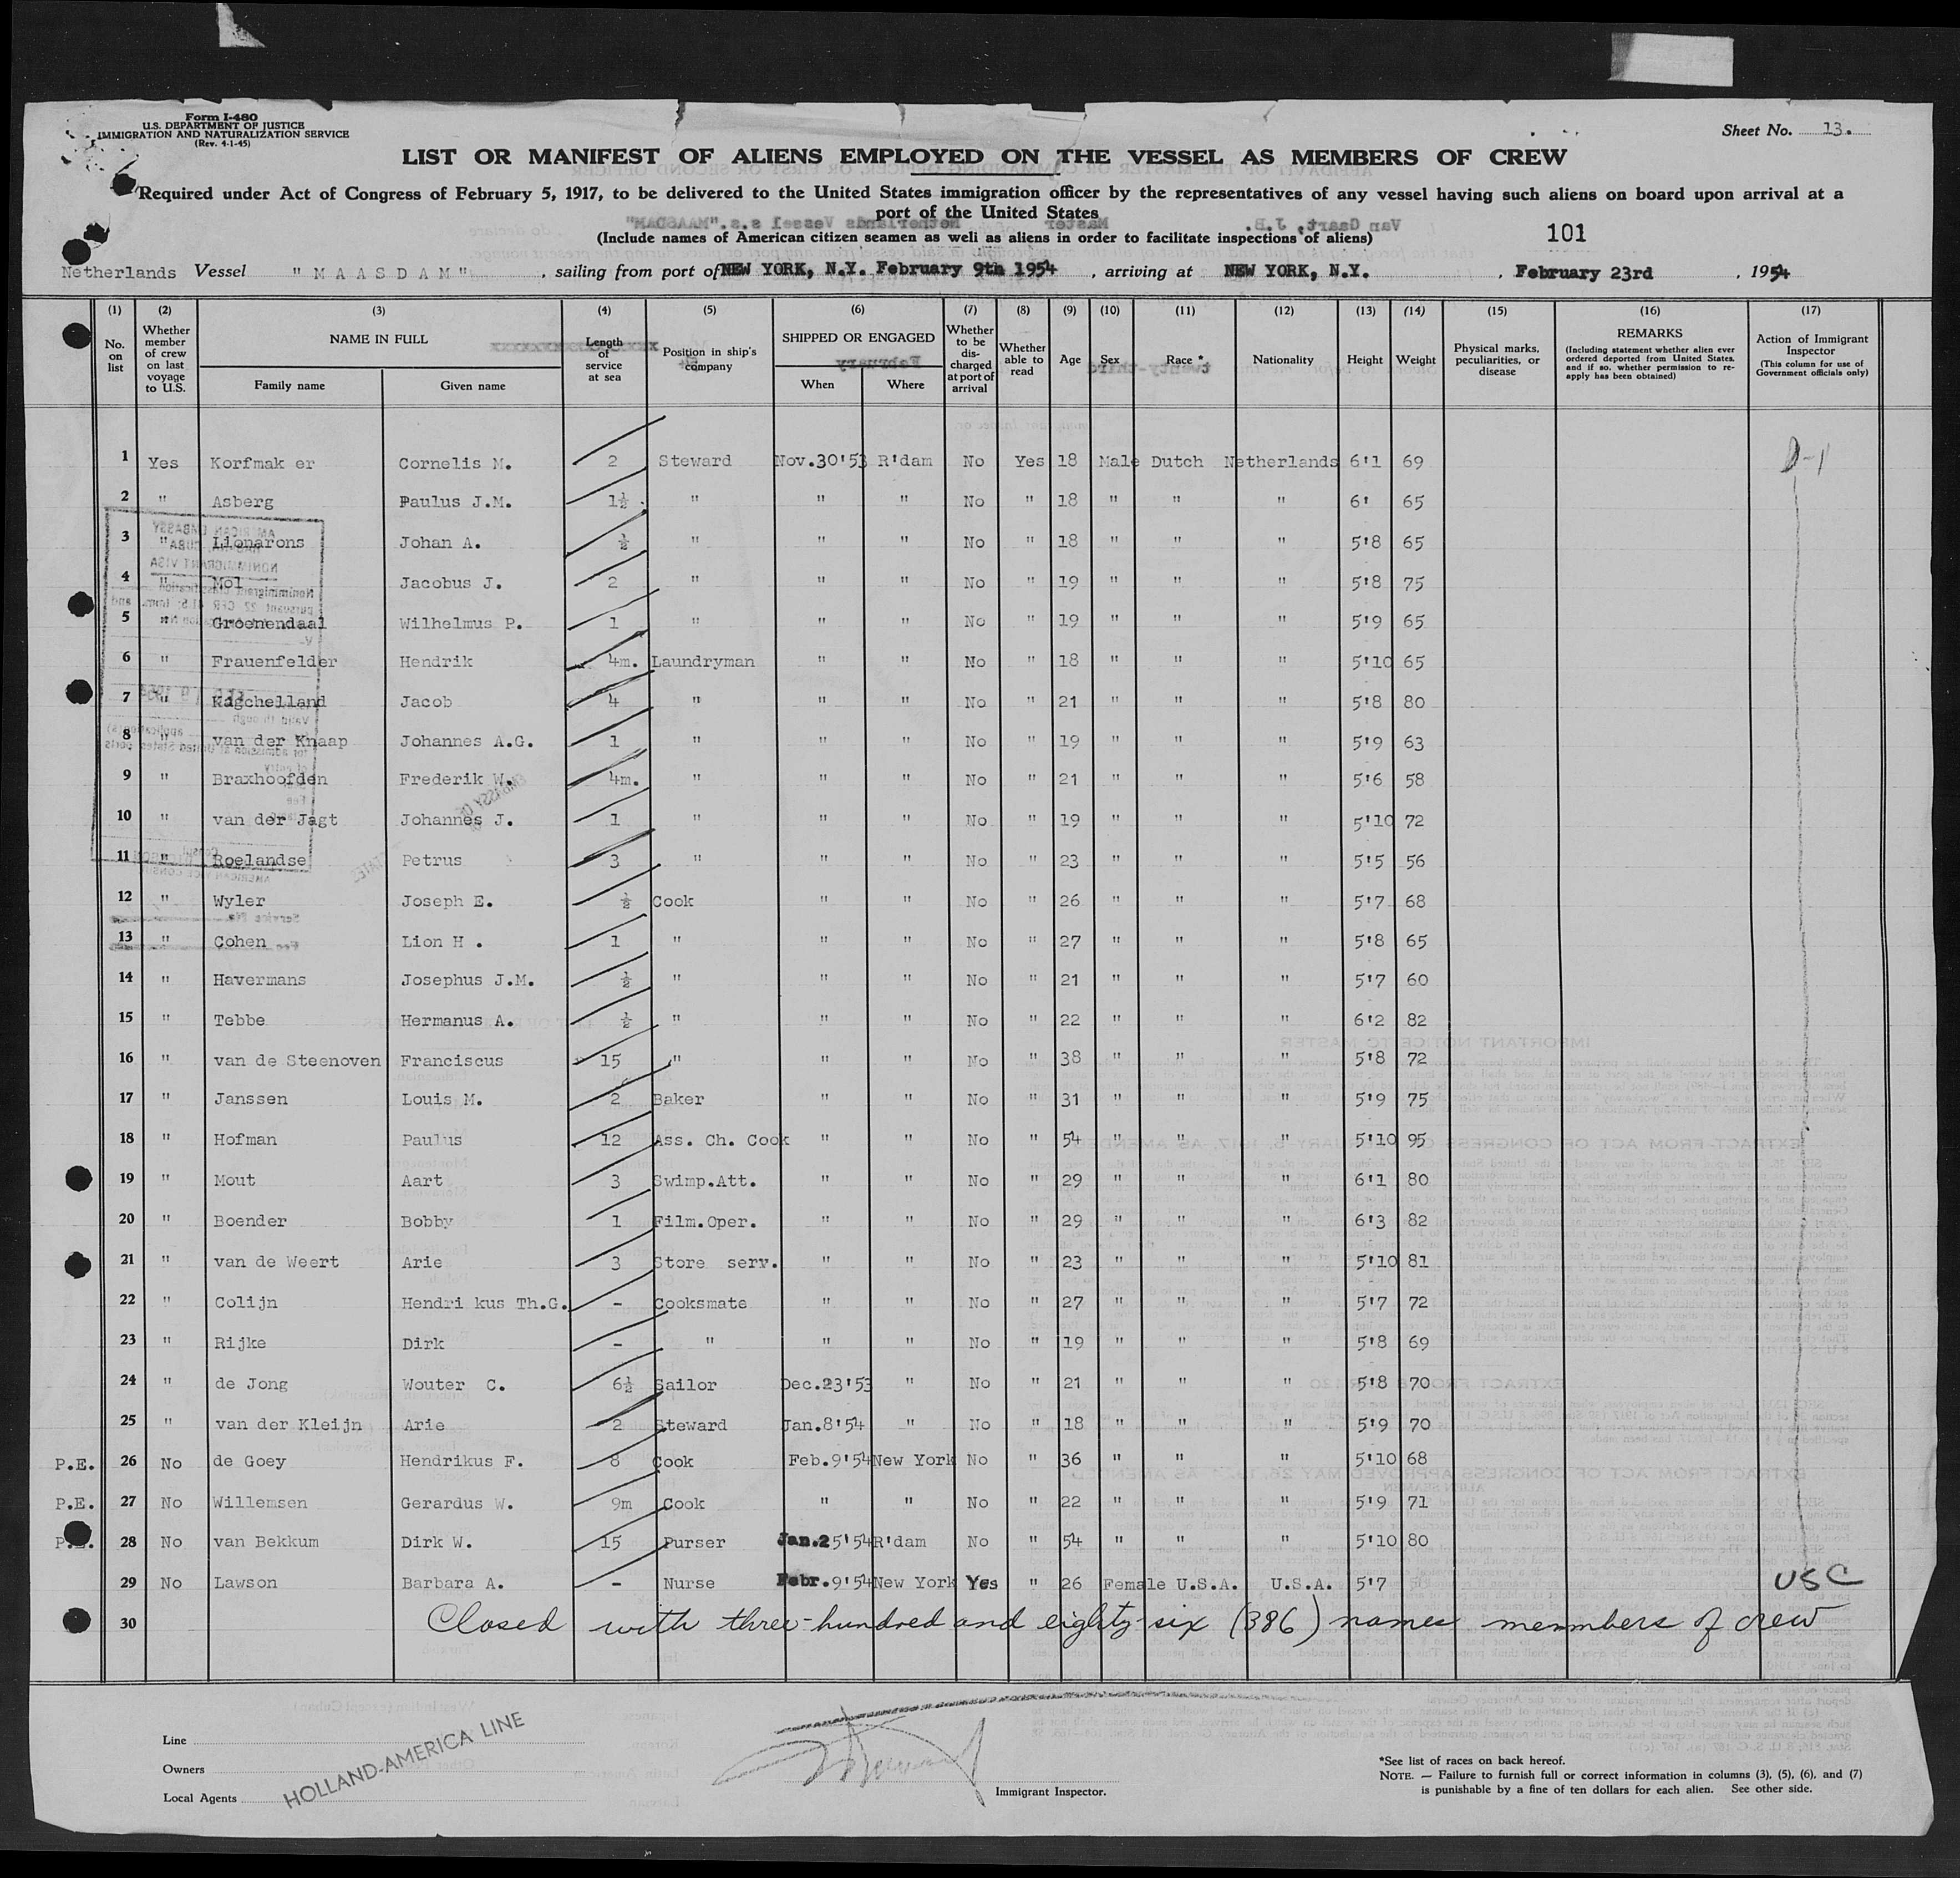 Form I-480
U.S. DEPARTMENT OF JUSTICE
IMMIGRATION AND NATURALIZATION SERVICE
(Rev. 4-1-45)
Sheet No. 13.
LIST OR MANIFEST OF ALIENS EMPLOYED ON THE VESSEL AS MEMBERS OF CREW
Required under Act of Congress of February 5, 1917, to be delivered to the United States immigration officer by the representatives of any vessel having such aliens on board upon arrival at a
port of the United States
(Include names of American citizen seamen as well as aliens in order to facilitate inspections of aliens)
101
Netherlands Vessel "MAASDAM", sailing from port of NEW YORK, N.Y. February 9th 1954, arriving at NEW YORK, N.Y., February 23rd, 1954
(1) (2) (3) (4) (5) (6) (7) (8) (9) (10) (11) (12) (13) (14) (15) (16) (17)
No. on list
Whether member of crew on last voyage to U.S.
NAME IN FULL
Family name Given name
Length of service at sea
Position in ship's company
SHIPPED OR ENGAGED
When Where
Whether to be discharged at port of arrival
Whether able to read
Age
Sex
Race *
Nationality
Height
Weight
Physical marks, peculiarities, or disease
REMARKS
(Including statement whether alien ever ordered deported from United States, and if so, whether permission to reapply has been obtained)
Action of Immigrant Inspector
(This column for use of Government officials only)
1 Yes Korfmak er Cornelis M. 2 Steward Nov.30'53 R'dam No Yes 18 Male Dutch Netherlands 6'1 69 D-1
2 " Asberg Paulus J.M. 1½ " " " No " 18 " " " 6' 65
3 " Lionarons Johan A. ½ " " " No " 18 " " " 5'8 65
4 " Mol Jacobus J. 2 " " " No " 19 " " " 5'8 75
5 " Groenendaal Wilhelmus P. 1 " " " No " 19 " " " 5'9 65
6 " Frauenfelder Hendrik 4m. Laundryman " " No " 18 " " " 5'10 65
7 " Kagchelland Jacob 4 " " " No " 21 " " " 5'8 80
8 " van der Knaap Johannes A.G. 1 " " " No " 19 " " " 5'9 63
9 " Braxhoofden Frederik W. 4m. " " " No " 21 " " " 5'6 58
10 " van der Jagt Johannes J. 1 " " " No " 19 " " " 5'10 72
11 " Roelandse Petrus 3 " " " No " 23 " " " 5'5 56
12 " Wyler Joseph E. ½ Cook " " No " 26 " " " 5'7 68
13 " Cohen Lion H . 1 " " " No " 27 " " " 5'8 65
14 " Havermans Josephus J.M. ½ " " " No " 21 " " " 5'7 60
15 " Tebbe Hermanus A. ½ " " " No " 22 " " " 6'2 82
16 " van de Steenoven Franciscus 15 " " " No " 38 " " " 5'8 72
17 " Janssen Louis M. 2 Baker " " No " 31 " " " 5'9 75
18 " Hofman Paulus 12 Ass. Ch. Cook " " No " 54 " " " 5'10 95
19 " Mout Aart 3 Swimp.Att. " " No " 29 " " " 6'1 80
20 " Boender Bobby 1 Film.Oper. " " No " 29 " " " 6'3 82
21 " van de Weert Arie 3 Store serv. " " No " 23 " " " 5'10 81
22 " Colijn Hendri kus Th.G. - Cooksmate " " No " 27 " " " 5'7 72
23 " Rijke Dirk - " " " No " 19 " " " 5'8 69
24 " de Jong Wouter C. 6½ Sailor Dec.23'53 " No " 21 " " " 5'8 70
25 " van der Kleijn Arie 2 Steward Jan.8'54 " No " 18 " " " 5'9 70
P.E. 26 No de Goey Hendrikus F. 8 Cook Feb.9'54 New York No " 36 " " " 5'10 68
P.E. 27 No Willemsen Gerardus W. 9m Cook " " No " 22 " " " 5'9 71
28 No van Bekkum Dirk W. 15 Purser Jan.25'54 R'dam No " 54 " " " 5'10 80
29 No Lawson Barbara A. - Nurse Febr.9'54 New York Yes " 26 Female U.S.A. U.S.A. 5'7 USC
30 Closed with three-hundred and eighty-six (386) names memmbers of crew
Line
Owners
Local Agents
HOLLAND-AMERICA LINE
Immigrant Inspector.
*See list of races on back hereof.
NOTE. — Failure to furnish full or correct information in columns (3), (5), (6), and (7)
is punishable by a fine of ten dollars for each alien. See other side.